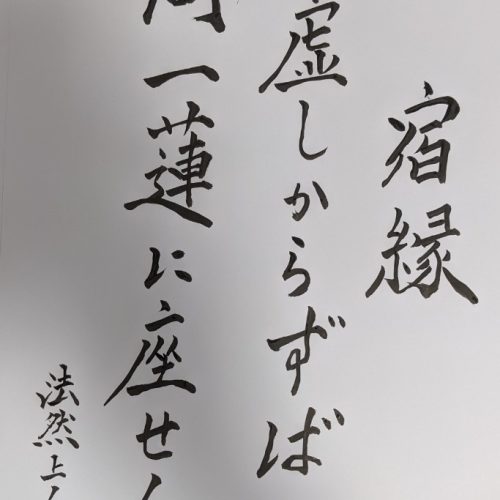 宿縁
虚しからずば
同一蓮に座せん
法然上人